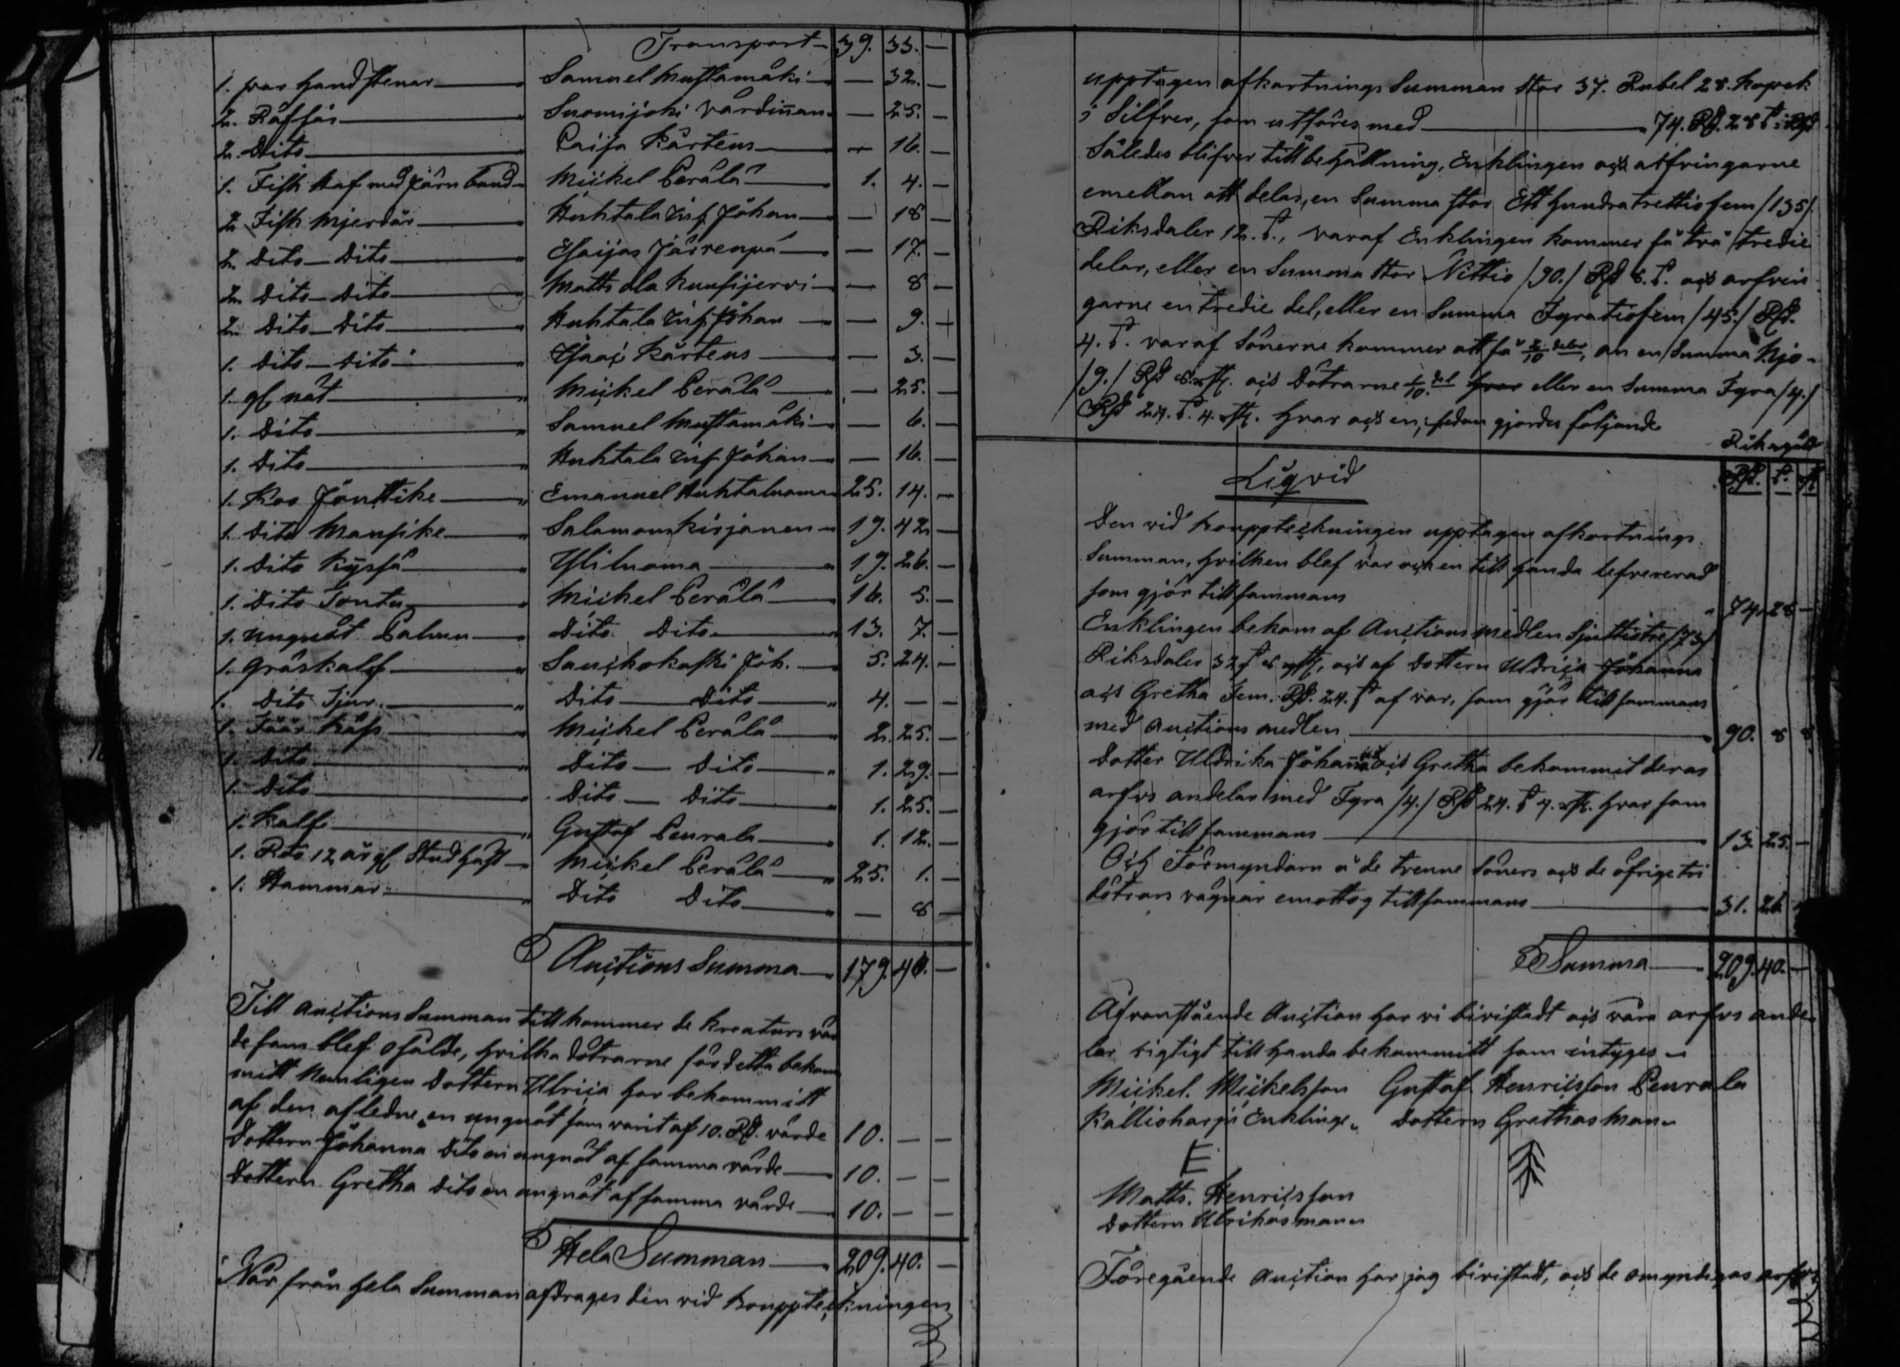 Transport 39. 33. —
1. par Handstenar Samuel Mustamäki — 32. —
2. Räffsor Suomijoki Värdinnan — 25. —
2. Dito Caisa Kärtens — 16. —
1. Fisk Kaf med Järn band Mickel Perälä 1. 4. —
2. Fisk Mjerdar Huhtala Inh. Johan — 18 —
2. Dito Dito Esaijas Järrenpä — 17. —
2. Dito Dito Matts ala Kuusijervi — 8 —
2. Dito Dito Huhtala Inh. Johan — 9. —
1. Dito Dito Isaac Kärtens — 3. —
1. gl. nät Mickel Perälä — 25. —
1. Dito Samuel Mustamäki — 6. —
1. Dito Huhtala Inh. Johan — 16. —
1. Koo Jänttike Emanuel Huhtaluoma 25. 14. —
1. Dito Mansike Salamon Kirjanen 19. 42 —
1. Dito Kÿssä Yliluoma 19. 26. —
1. Dito Tontu Mickel Perälä 16. 5. —
1. ungnöt Palmu Dito Dito 13. 7. —
1. Gräskalf Sauschokoski Joh. 5. 24. —
1. Dito Tjur Dito Dito 4. — —
1. Får Mickel Perälä 2. 25. —
1. Dito Dito Dito 1. 29. —
1. Dito Dito Dito 1. 25. —
1. Kalf Gustaf Peurala 1. 12. —
1. 12 år gl. Stod Häst Mickel Perälä 25. 1. —
1. Hammar Dito Dito — 8 —
Auctions Summa 179. 40. —
Till Auctions Summan tillkommer de Kreaturs vär
de som blef osålde, hvilka döttrarne för detta bekom
mitt Nemligen Dottern Ulrica har bekommitt
af den afledne en ungnöt som varit af 10. Rd. värde 10. — —
Dottern Johanna Dito en ungnöt af samma värde 10. — —
Dottern Gretha Dito en ungnöt af samma värde 10. — —
Hela Summan 209. 40. —
När från hela Summan afdrages den vid bouppteckningen
upptagen afkortnings Summan stor 37. Rubel 28. Kopek
i Silfver, som utföres med 74. Rd. 28 s.
Således blifver till behållning, Enklingen och arfvingarne
emellan att delas, en Summa stor Ett hundra trettiofem /135/
Riksdaler 12. s., varaf Enklingen kommer få två tredie
delar, eller en Summa stor Nittio /90./ Rd 8. s. och arfvin
garne en tredie del, eller en Summa Fyratiofem /45./ Rd.
4. s. varaf Sönerne kommer att få 2/10 delar, en Summa Nio
/9./ Rd och Döttrarne 1/10 del eller en Summa Fyra /4./
Rd 24. s. 4. hvar och en, sedan gjordes följande
Riksgäld
Liqvid Rd. s.
Den vid bouppteckningen upptagen afkortnings
Summan, hvilken blef var och en till handa lefvererad
som gjör tillsammans 74. 28 —
Enklingen bekom af Auctions medlen Sjuttitre /73/
Riksdaler 32 s och af Dottern Ulrica Johanna
och Gretha Fem Rd. 24. s af var, som gjör tillsammans
med Auctions medlen 90. 8 8.
Dotter Uldrika Johanna och Gretha bekommit deras
arfvs andelar med Fyra /4./ Rd 24. s 4. hvar som
gjör tillsammans 13. 25. —
Och Förmyndarn å de trenne Söners och de öfrige tri
döttrars vägnar emottog tillsammans 31. 26
Summa 209. 40. —
Afvanstående Auction har vi bivistadt och våra arfvs ande
lar rigtigt tillhanda bekommitt som intyges
Mickel Mickelsson Gustaf Henricsson Peurala
Kallioharju Enkling Dottern Grethas Man
Matts. Henricsson
Dottern Ulrikas man
Föregående Auction har jag bivistadt, och de omyndigas arfvs